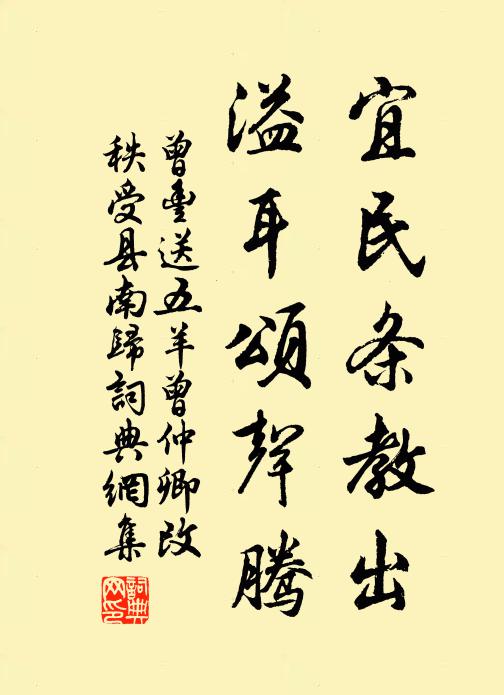 宜民条教出
溢耳頌聲騰
曾豊送五羊曾仲卿改
秩受县南歸詞典網集
詞典网印